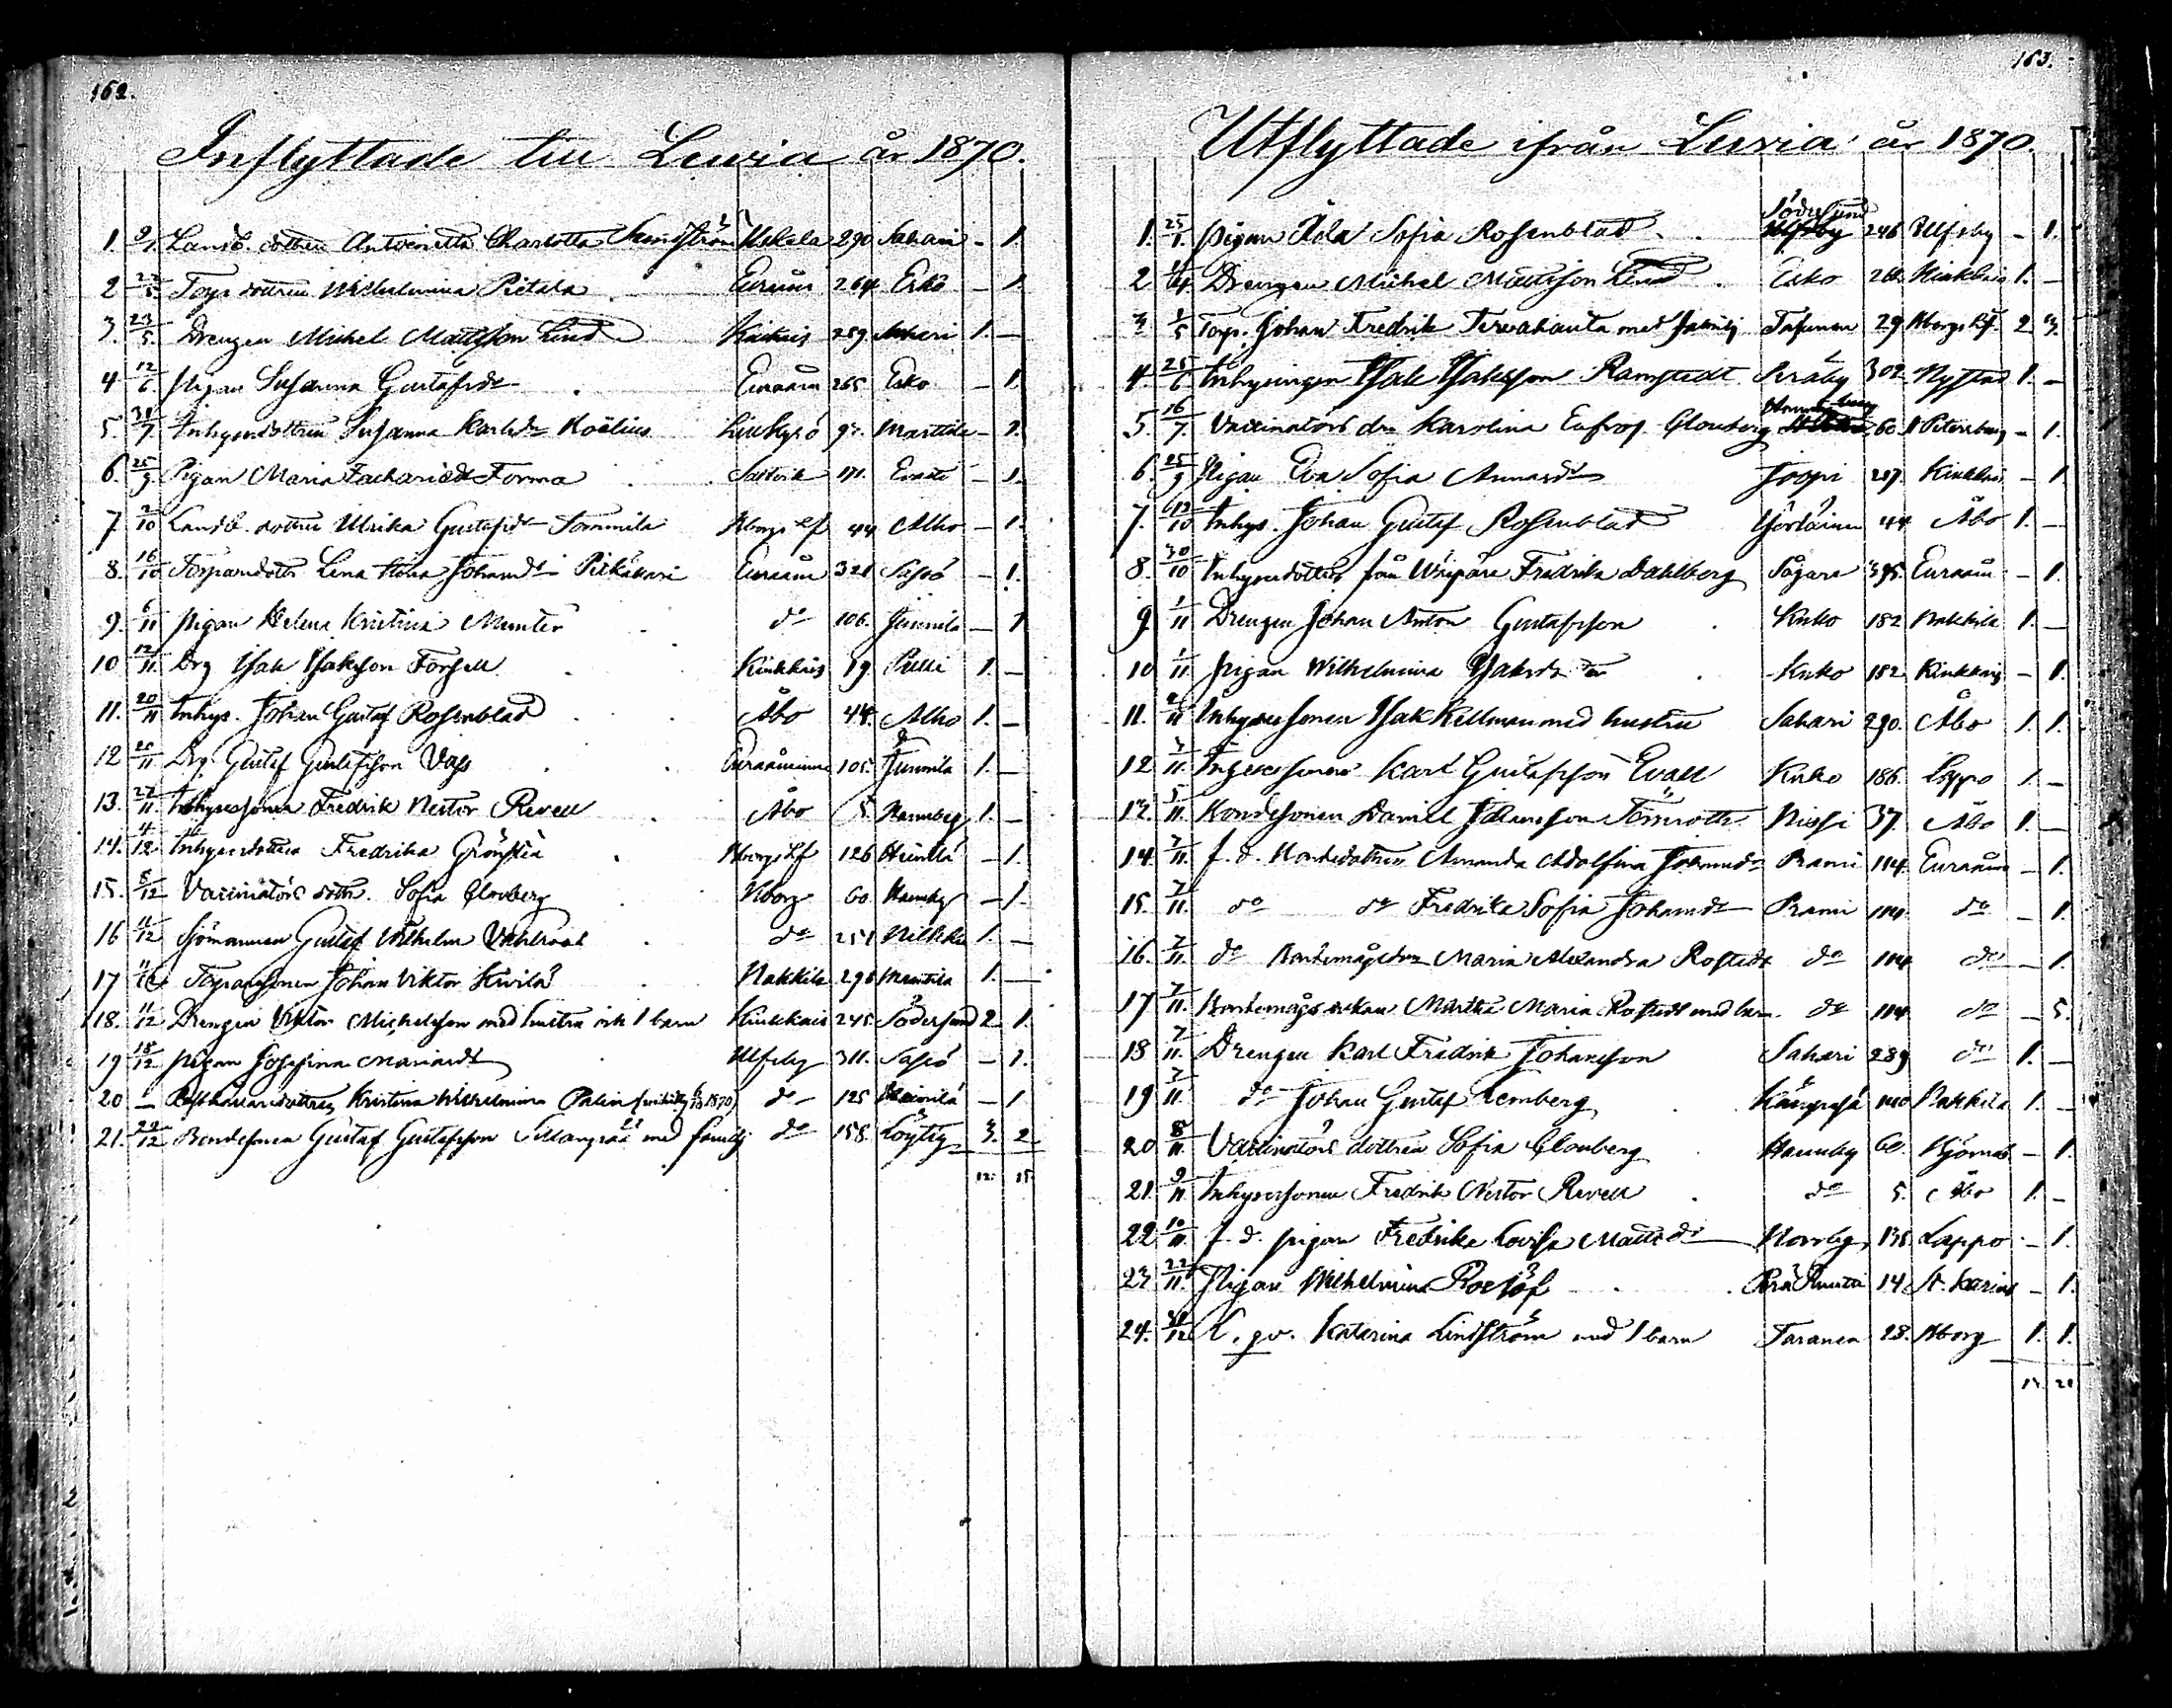 162.
Inflyttade till Luvia år 1870.
1. 9/1. Landb. dottren Antoinetta Charlotta Sundström Uskela 290 Sahari – 1.
2 22/5 Torp. dottren Wilhelmina Pietala Euraåm 264 Esko – 1.
3. 23/5. Drengen Michel Mattsson Lind Kiukais 259. Sahari 1. –
4 12/6. Pigan Susanna Gustafsdr Euraåm 265. Esko – 1.
5. 31/7. Inhysesdottren Susanna Karlsdr Koëlius Marttila – 1.
6. 25/9. Pigan Maria Zachariedr Forma 171. – 1.
7. 2/10 Landb. dottren Ulrika Gustafsdr Tommila Bborgs Lf 44 Alho – 1.
8. 16/10 Torparedottr Lena Stina Johansdr Pitkäkari Euraåm 321 Sassö – 1.
9. 6/11 Pigan Helena Kristina Munter do 106. Junnila – 1
10 12/11. Drg Isak Isaksson Forsell Kiukkais 19. Pelli 1. –
11. 20/11 Inhys. Johan Gustaf Rosenblad Åbo 44. Alho 1. –
12 20/11 Drg. Gustaf Gustafsson Vass Euraåminne 105. Junnila 1. –
13. 27/11. Inhysessonen Fredrik Nestor Revell Åbo 5. Hannuby 1. –
14. 4/12 Inhysesdottren Fredrika Grönstén Bborgs Lf 126 Heinilä – 1.
15. 8/12 Vaccinatörs dottr. Sofia Clouberg Bborg 60. Hannuby – 1.
16 11/12 Sjömannen Gustaf Wilhelm Vahlroot do 251 1. –
17 11/12 Torparesonen Johan Viktor Kivilä Nakkila 296 Marttila 1. –
18. 11/12 Drengen Viktor Michelsson med hustru och 1 barn Kiukkais 245. Södersund 2. 1.
19 18/12 Pigan Josefina Mariasdr Ulfsby 311. Sassö – 1.
20 – Kristina Wilhelmina Palin 1870) do 125 Heinilä – 1
21. 29/12 Bondesonen Gustaf Gustafsson Sillanpää med familj do 158. Löytty 3. 2
12. 15.
163.
Utflyttade ifrån Luvia år 1870.
Södersund
1. 25/1. Pigan Ada Sofia Rosenblad Ulfsby 246 Ulfsby – 1.
2 Drengen Michel Mattsson Lind Esko Kiukkais 1. –
3 1/5 Torp. Johan Fredrik Tervahauta med familj Tasanen 29 Bborgs Lf. 2 3.
4. 25/6 Inhysingen Isak Isaksson Ramstedt Peräby 302 Nystad 1. –
5. 16/7. Vaccinatörs dra Karolina Eufros. Clouberg 60. S Petersburg – 1.
6. 25/9 Pigan Eva Sofia Annasdr Joopi 217 Kiukkais – 1
7. 12/10 Inhys. Johan Gustaf Rosenblad 44 Åbo 1. –
8. 30/10 Inhysesdottr från Fredrika Dahlberg Sågars 395. Euraåm – 1.
9. 1/11 Drengen Johan Anton Gustafsson Kuko 182 Nakkila 1. –
10 1/11. Pigan Wilhelmina Isaksdr Kuko 182 Kiukkais – 1.
11. Inhysessonen Isak Kellman med hustru Sahari 290. Åbo 1. 1.
12 3/11. Inhysessonen Karl Gustafsson Evall Kuko 186. Lappo 1. –
13. 5/11. Bondesonen Daniel Johansson Törnroth Nissi 37. Åbo 1. –
14. 7/11. f. d. Bondedottren Amanda Adolfina Johansdr Prami 114. Euraåm – 1.
15. 7/11. do do Fredrika Sofia Johansdr Prami 114. do – 1.
16. 7/11. do Bondemågsdrn Maria Alexandra Rostedt do 114 do – 1.
17 7/11. Bondemågs enkan Martha Maria Rostedt med barn do 114 do – 5.
18 7/11. Drengen Karl Fredrik Johansson Sahari 289 do 1. –
19 7/11. do Johan Gustaf Lemberg 140 Nakkila 1. –
20 8/11. Vaccinatörs dottren Sofia Clouberg Hannuby 60. Bjerno – 1.
21. 9/11. Inhysessonen Fredrik Nestor Revell do 5. Åbo 1. –
22 10/11. f. d. pigan Fredrika Lovisa Mattsdr 138. Lappo – 1.
23. 22/11. Pigan Wilhelmina Roslöf 14 St. Karins – 1.
24. 31/12 L. qv. Katarina Lindström med 1 barn Taranen 28. Bborg 1. 1.